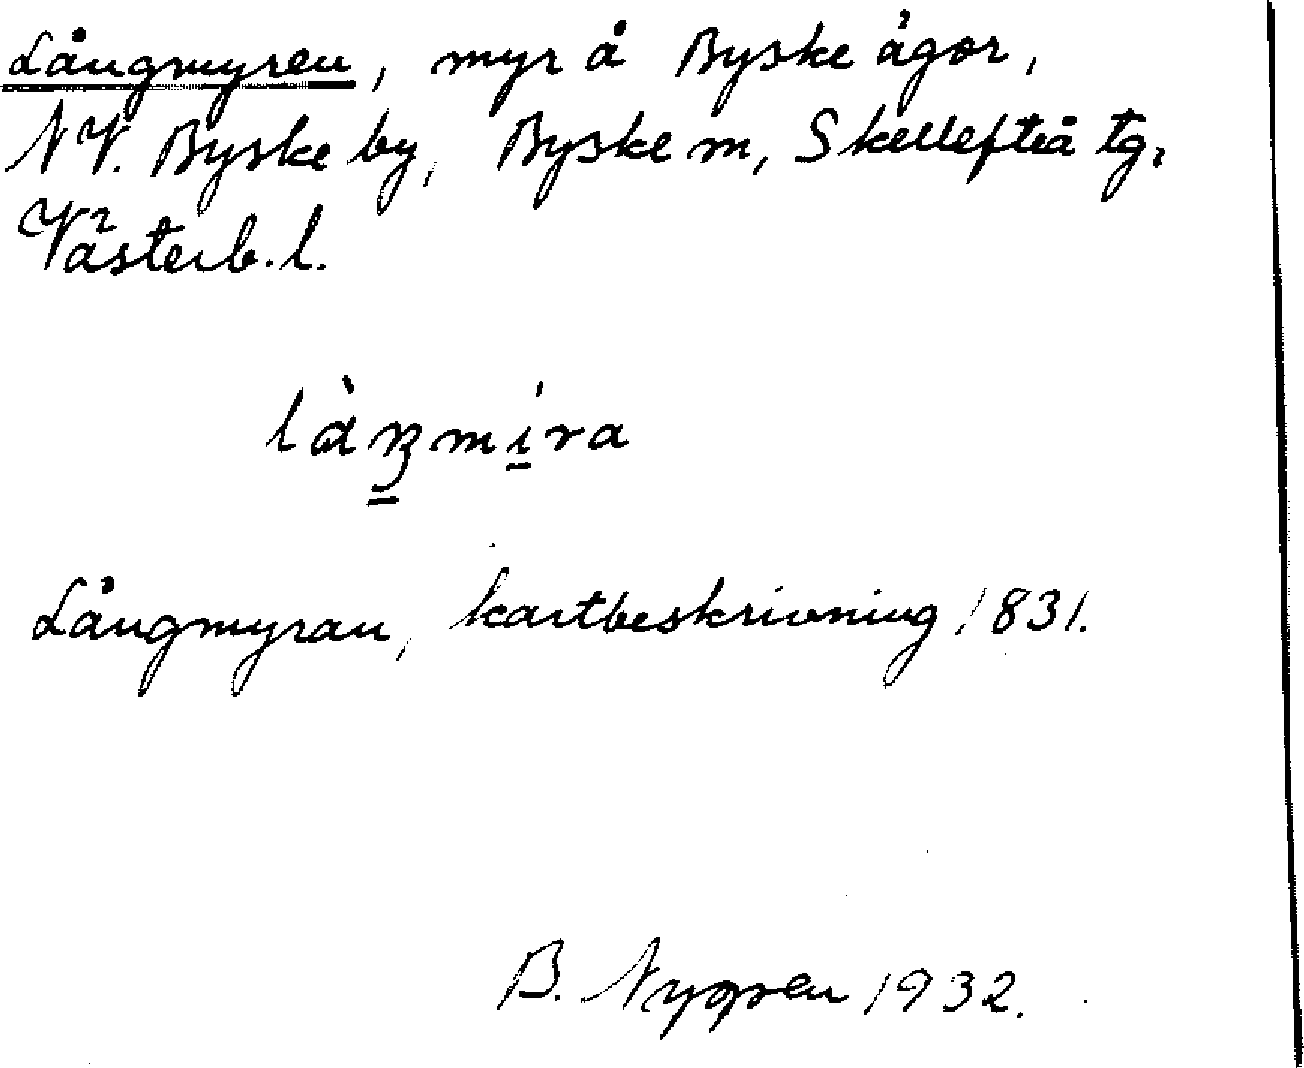 Långmyren, myr å Byske ägor,
NV. Byske by, Byske sn, Skellefteå tg,
Västerb. l.
làŋ̱mi̱ra
Långmyran, kartbeskrivning 1831.
B. Nygren 1932.